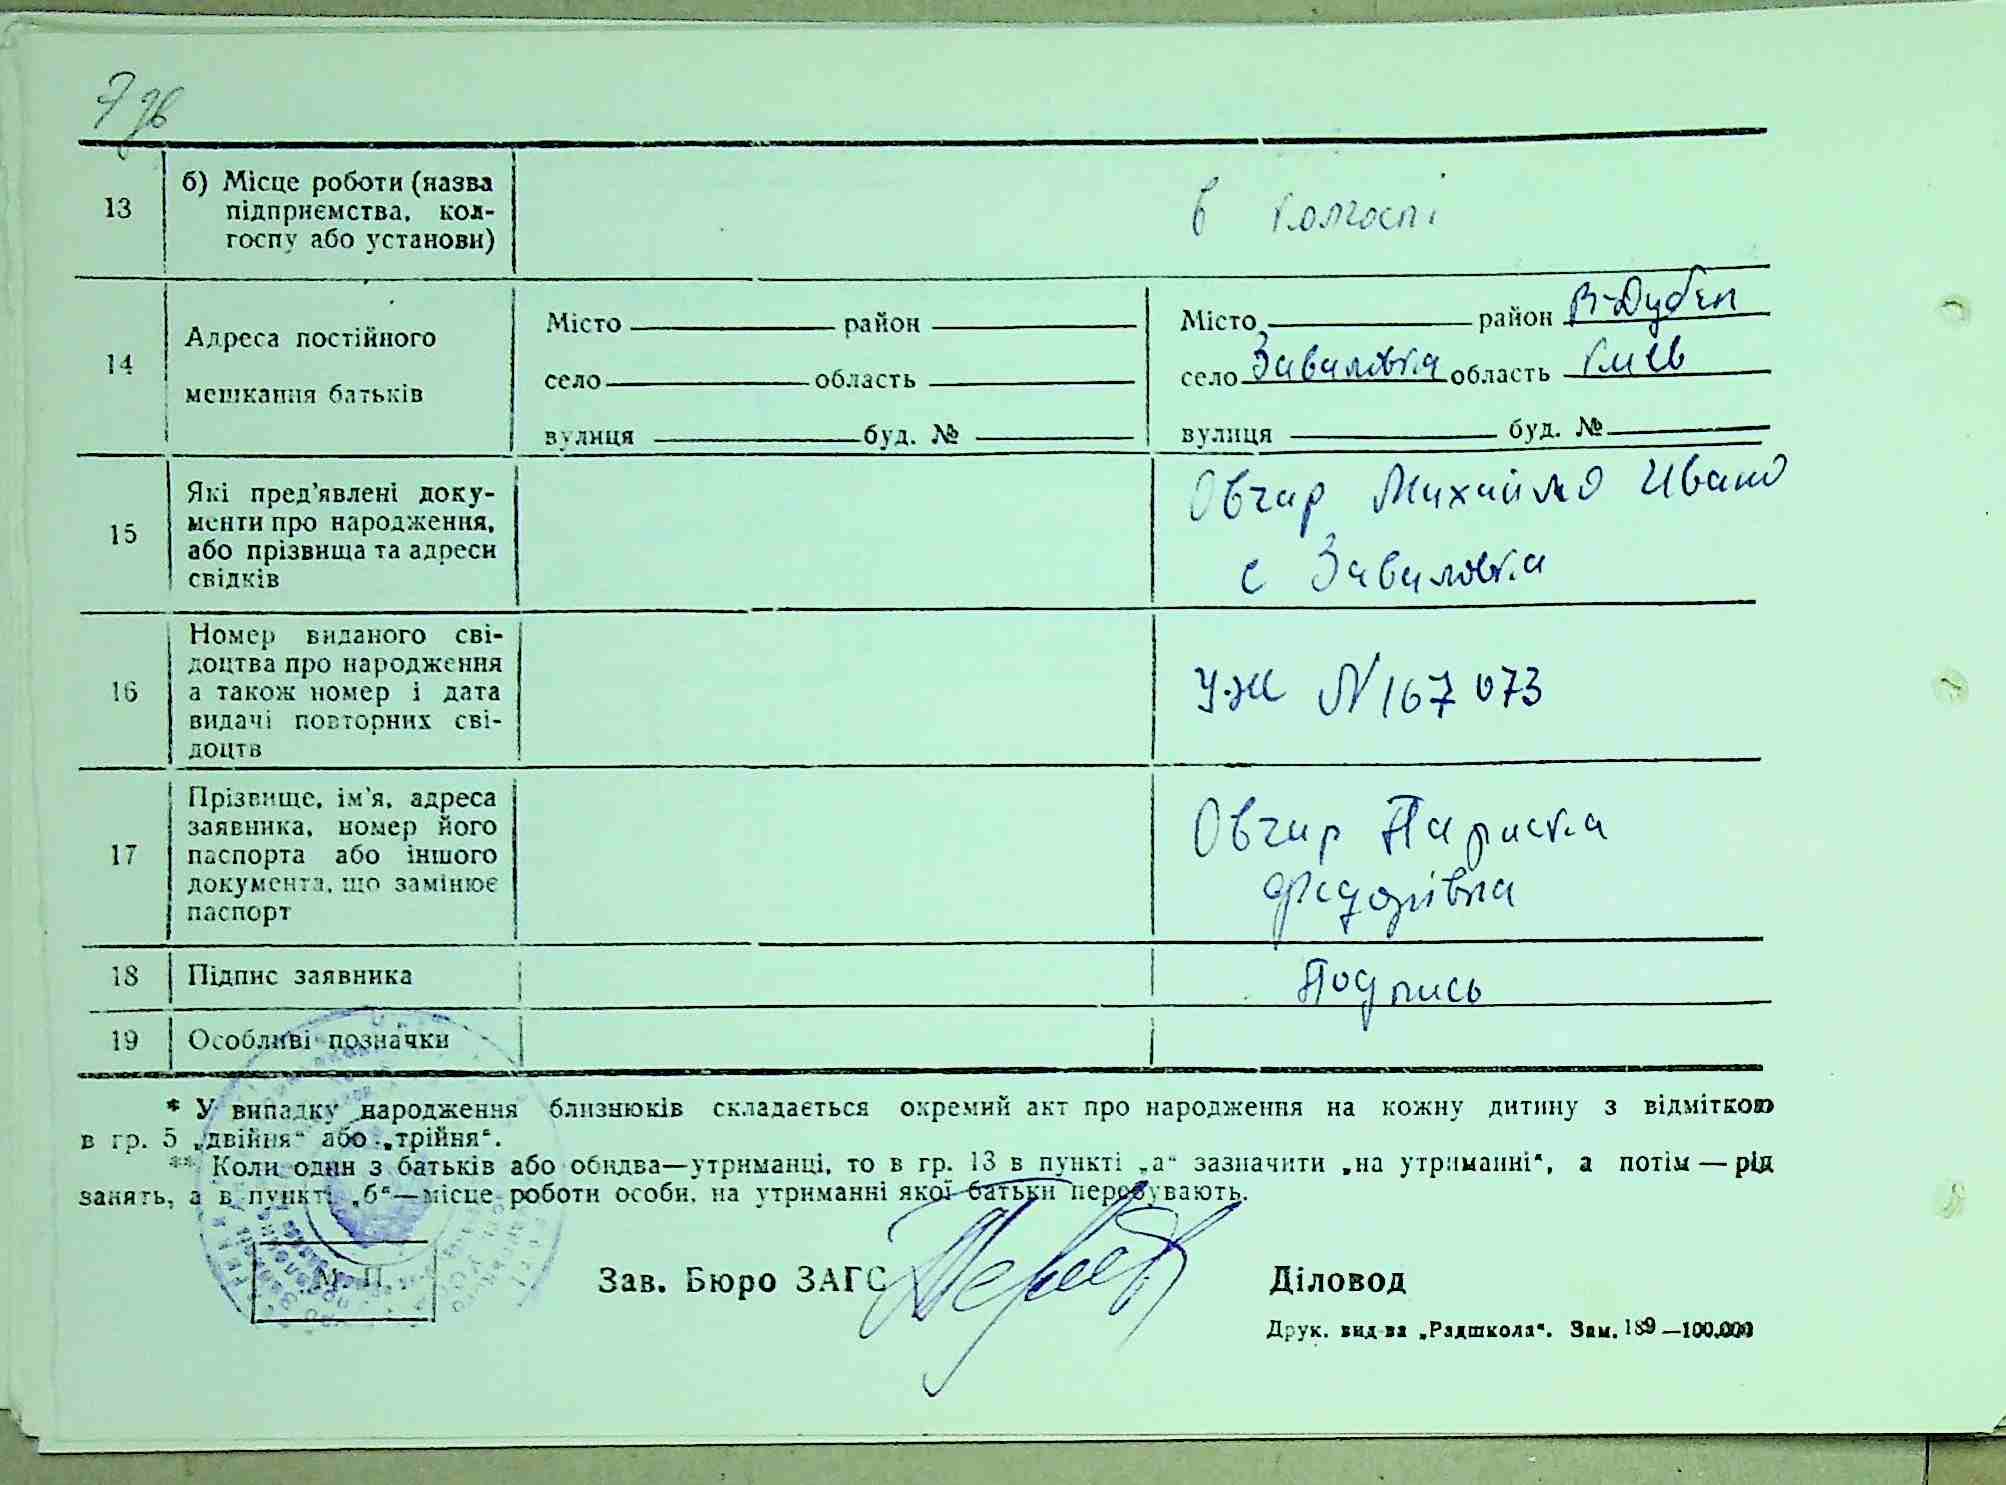 7 зв
13 б) Місце роботи (назва
підприємства, кол-
госпу або установи)
в колгоспі
14 Адреса постійного
мешкання батьків
Місто район
село область
вулиця буд. №
Місто район В-Дубеч
село Заваловка область Київ
вулиця буд. №
15 Які пред'явлені доку-
менти про народження,
або прізвища та адреси
свідків
Овчар Михайло Ивано
с Заваловка
16 Номер виданого сві-
доцтва про народження
а також номер і дата
видачі повторних сві-
доцтв
УЖ N 167073
17 Прізвище, ім'я, адреса
заявника, номер його
паспорта або іншого
документа, що замінює
паспорт
Овчар Париска
Федорівна
18 Підпис заявника
Подпись
19 Особливі позначки
* У випадку народження близнюків складається окремий акт про народження на кожну дитину з відміткою
в гр. 5 „двійня“ або „трійня“.
** Коли один з батьків або обидва—утриманці, то в гр. 13 в пункті „а“ зазначити „на утриманні“, а потім — рід
занять, а в пункті „б“—місце роботи особи, на утриманні якої батьки перебувають.
М. П.
Зав. Бюро ЗАГС
Діловод
Друк. вид-ва „Радшкола“. Зам. 189 —100.000